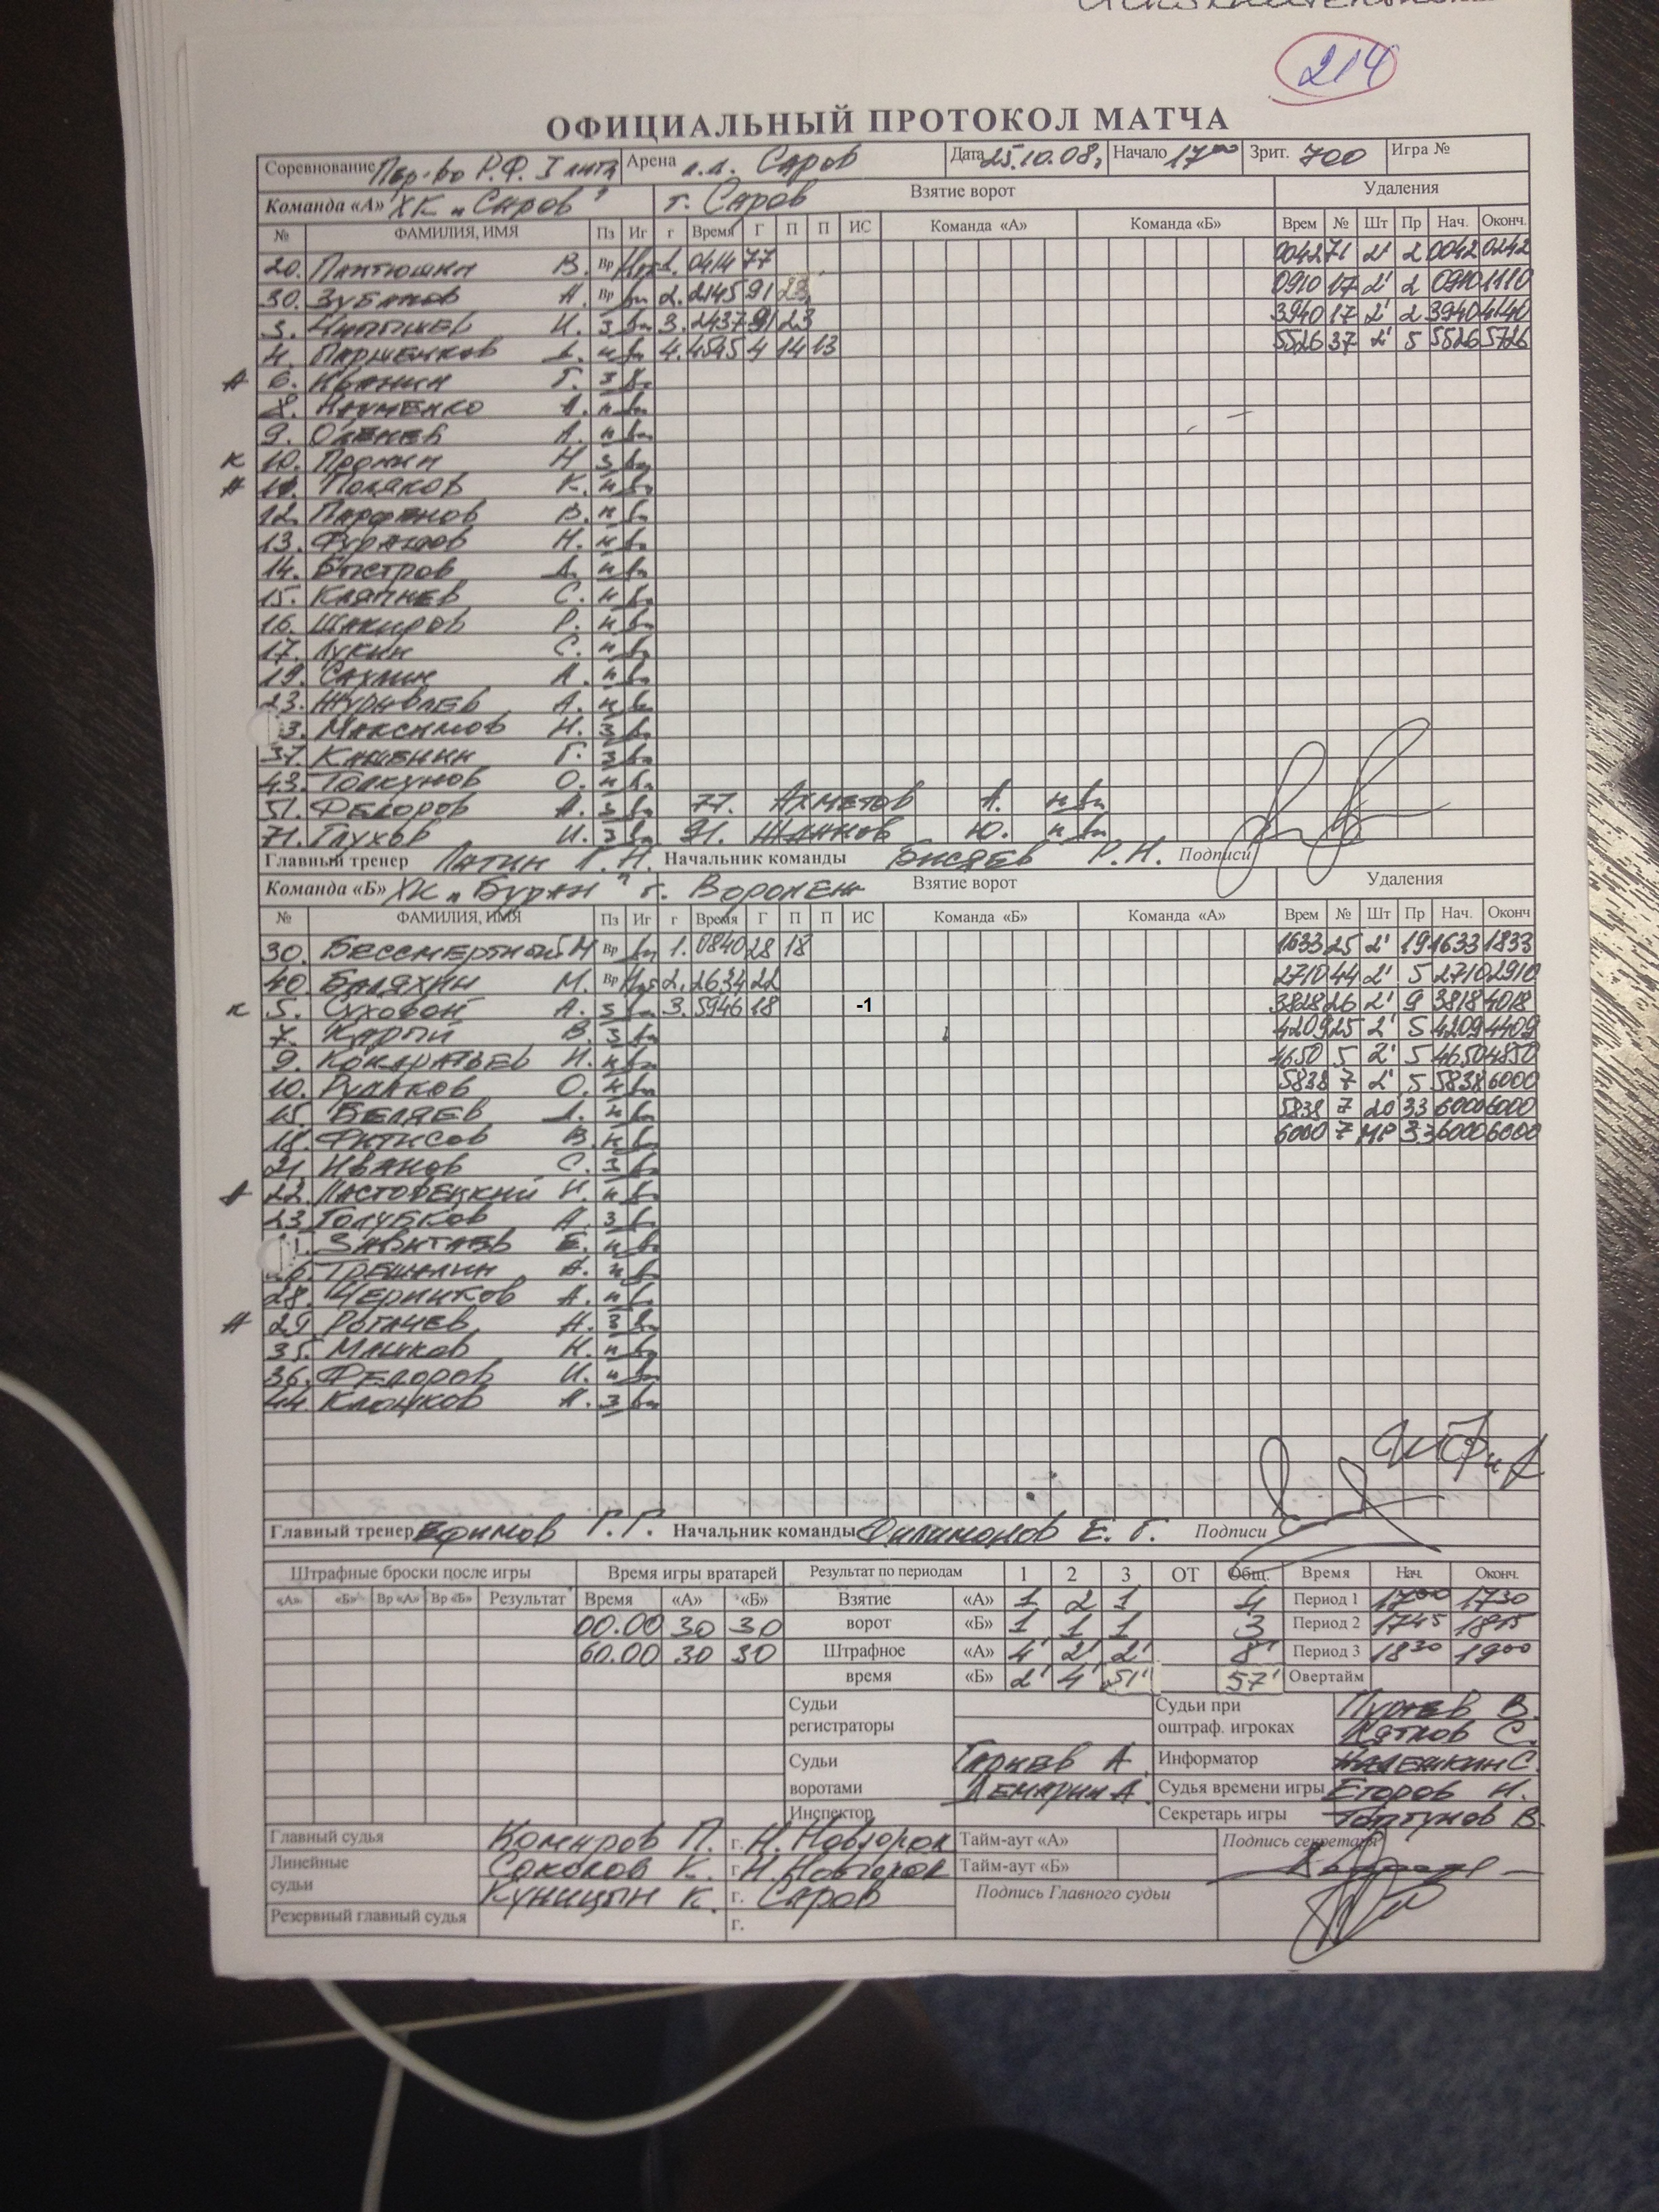 214
ОФИЦИАЛЬНЫЙ ПРОТОКОЛ МАТЧА
Соревнование Пер-во Р.Ф. I лига Арена л.д. Саров Дата 25.10.08, Начало 17 00 Зрит. 700 Игра №
Команда «А» ХК "Саров" г. Саров Взятие ворот Удаления
№ ФАМИЛИЯ, ИМЯ Пз Иг г Время Г П П ИС Команда «А» Команда «Б» Врем № Шт Пр Нач. Оконч.
20. Пантюшин В. Вр 1. 0414 77 0042 71 2' 2 0042 0242
30. Зубанов А. Вр 2. 2145 91 23 0910 17 2' 2 0910 1110
3. И. з 3. 2437 91 23 3940 17 2' 2 3940 4140
4. Паршенков н 4. 4545 4 14 13 5526 37 2' 5 5526 5726
А 6. Иванин Г. з
8. Науменко н
9. А. н
К 10. Пронин Н з
А Поляков К. н
12. Парфенов В. н
13. Н. н
14. Быстров н
15. Кляпнев С. н
16. Шакиров Р. н
17. Лукин С. н
19. Сахлин А. н
23. Журавлев А. н
Максимов Н. з
37. Г. з
43. Толкунов О. н
51. Федоров А. з 77. Ахметов А. н
71. Глухов И. з 91. Жданов Ю. н
Главный тренер Начальник команды Бисяев Р.Н. Подписи
Команда «Б» ХК "Буран" г. Воронеж Взятие ворот Удаления
№ ФАМИЛИЯ, ИМЯ Пз Иг г Время Г П П ИС Команда «Б» Команда «А» Врем № Шт Пр Нач. Оконч
30. Бессмертный Н Вр 1. 0840 28 18 1633 25 2' 19 1633 1833
40. Баляхин М. Вр 2. 2634 22 2710 44 2' 5 2710 2910
К 5. Суховой А. з 3. 5946 18 -1 26 2' 9 3818 4018
7. Карый В. з 4209 25 2' 5 4209 4409
9. Кондратьев Н. н 4650 5 2' 5 4650 4850
10. Рудаков О. н 5838 7 2' 5 5838 6000
15. Беляев н 5838 7 20 33 6000 6000
18. Фитисов В. н 6000 7 МР 33 6000 6000
21. Иванов С. з
А 22. И. н
23 Голубков А. з
Е. н
Трешалин А. н
28. Черников А. н
А 29 Рогачев з
35. н
36. Федоров И. н
44. з
Главный тренер Ефимов Г.Г. Начальник команды Филимонов Е. Г. Подписи
Штрафные броски после игры Время игры вратарей Результат по периодам 1 2 3 ОТ Общ. Время Нач. Оконч.
«А» «Б» Вр «А» Вр «Б» Результат Время «А» «Б» Взятие «А» 1 2 1 4 Период 1 17 00 17 30
00.00 30 30 ворот «Б» 1 1 1 3 Период 2 17 45 18 15
60.00 30 30 Штрафное «А» 4' 2' 2' 8' Период 3 18 30 19 00
время «Б» 2' 4' 51' 57' Овертайм
Судьи регистраторы Судьи при оштраф. игроках В.
Пятков С.
Судьи Информатор С.
воротами А. Судья времени игры Егоров Н.
Инспектор Секретарь игры В.
Главный судья Комаров П. г. Н. Новгород Тайм-аут «А» Подпись секретаря
Линейные судьи Соколов К. г. Н. Новгород Тайм-аут «Б»
Куницын К. г. Саров Подпись Главного судьи
Резервный главный судья г.